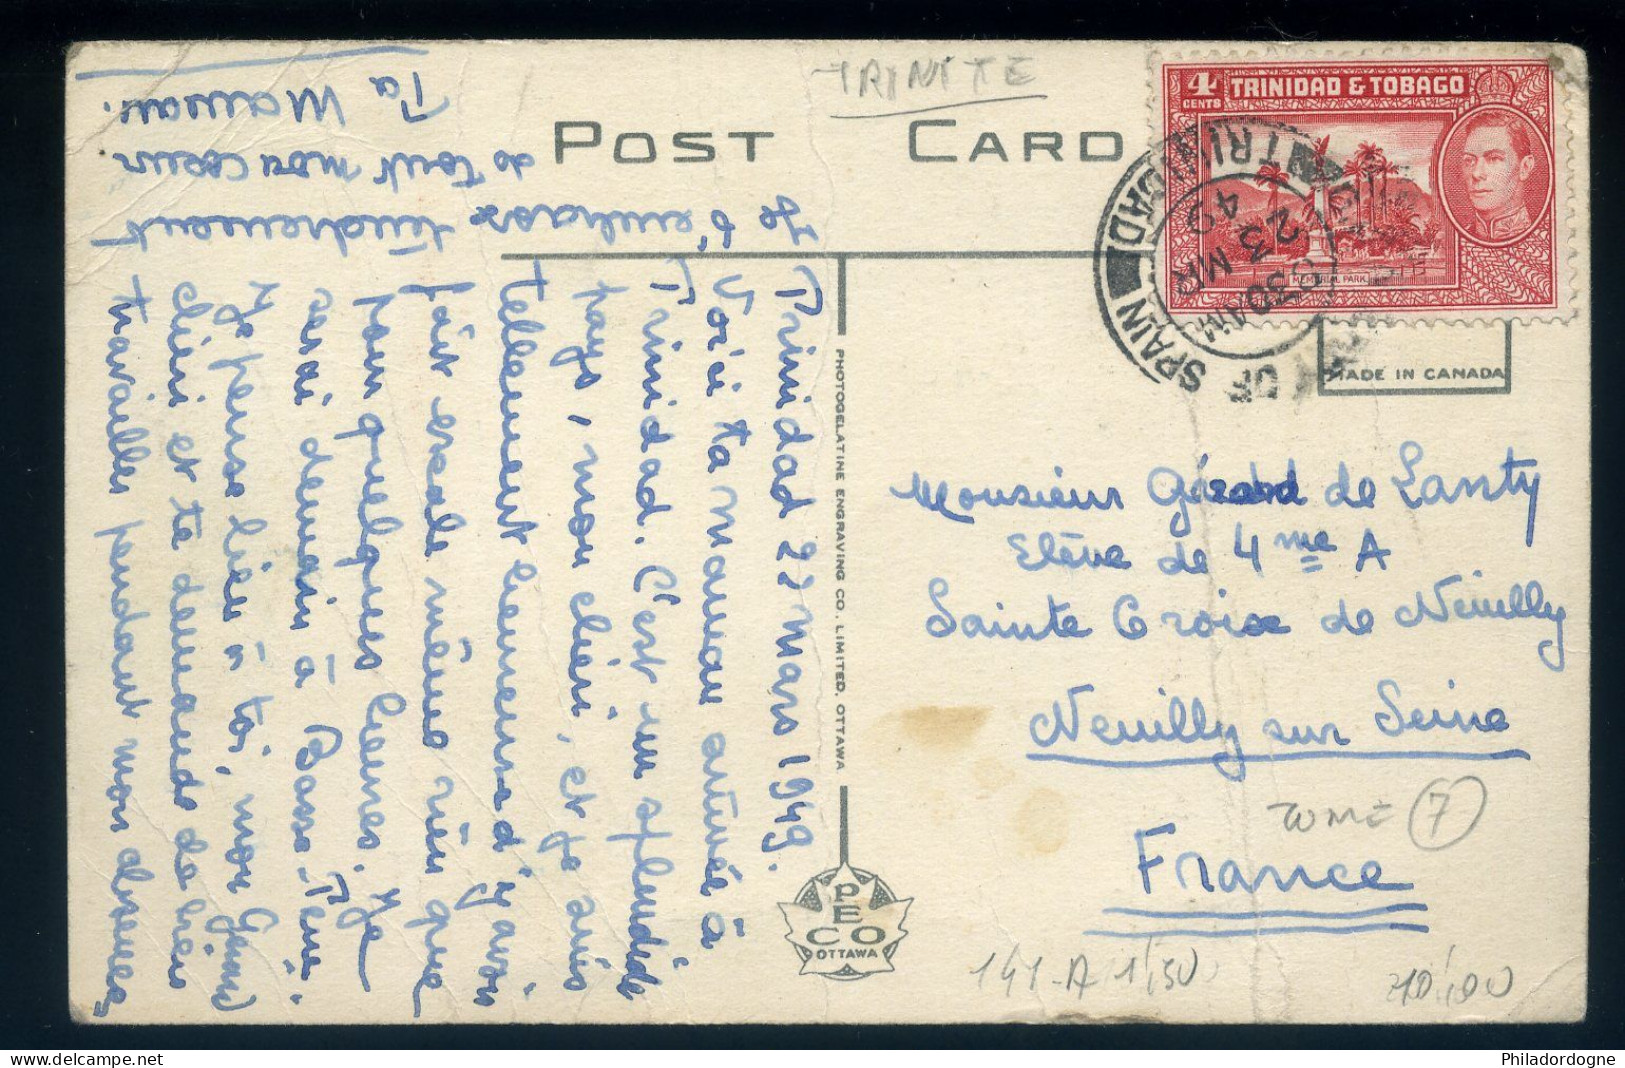 TRINITE
POST CARD
4 CENTS TRINIDAD & TOBAGO
MEMORIAL PARK
PORT OF SPAIN TRINIDAD
930AM
23 MR
49
MADE IN CANADA
PHOTOGELATINE ENGRAVING CO. LIMITED, OTTAWA
PECO
OTTAWA
Trinidad 22 mars 1949.
Voici ta maman arrivée à
Trinidad. C'est un splendide
pays, mon chéri, et je suis
tellement heureuse d'y avoir
fait escale même rien que
pour quelques heures. Je
serai demain à Basse-Terre.
Je pense bien à toi, mon
chéri et te demande de bien
travailler pendant mon absence
Je t'embrasse tendrement
de tout mon coeur
Ta Maman.
Monsieur Gérard de Lanty
Elève de 4 me A
Sainte Croix de Neuilly
Neuilly sur Seine
France
TOME 7
141-A 1/50
Philadordogne